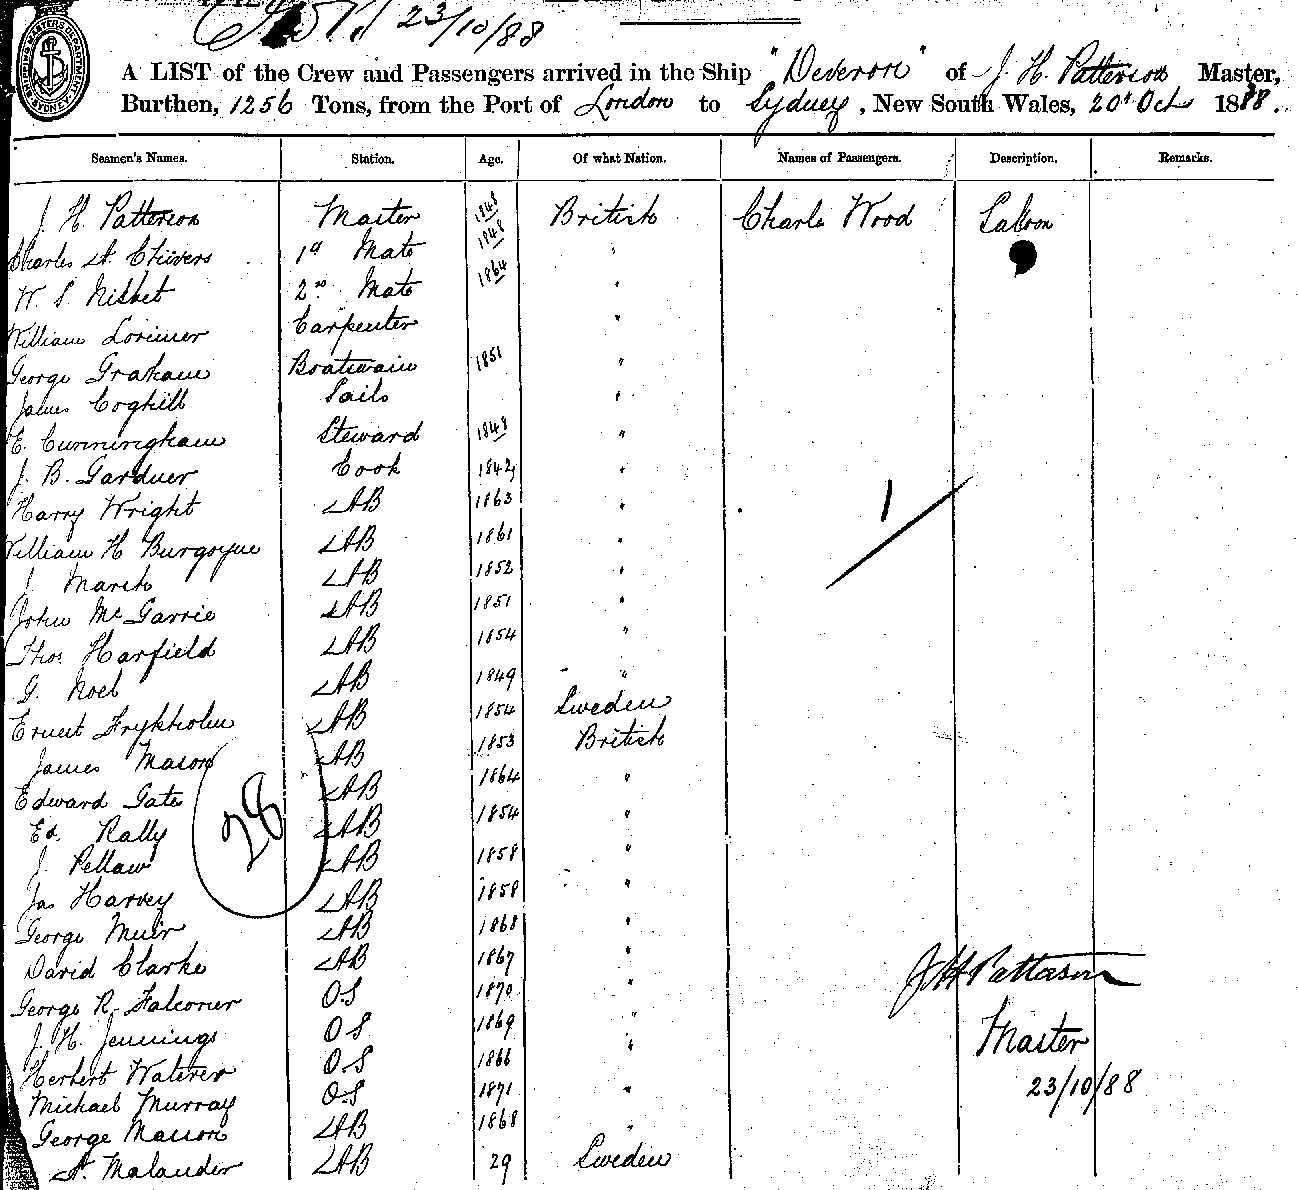 23/10/88
SHIPPING MASTERS DEPARTMENT SYDNEY
A LIST of the Crew and Passengers arrived in the Ship "Deveron" of J. H. Patterson Master,
Burthen, 1256 Tons, from the Port of London to Sydney, New South Wales, 20th Oct 1888.
Seamen's Names. Station. Age. Of what Nation. Names of Passengers. Description. Remarks.
J. H. Patterson Master 1848 British Charls Wood Saloon
Charles A. Chivers 1st Mate 1848 "
W. S. Nisbet 2nd Mate 1864 "
William Lorimer Carpenter "
George Graham Boatswain 1851 "
James Coghill Sails "
E. Cunningham Steward 1848 "
J. B. Gardner Cook 1842 "
Harry Wright AB 1863 "
1
William H Burgoyne AB 1861 "
J. March AB 1852 "
John McGarrie AB 1851 "
Thos Harfield AB 1854 "
G. Noel AB 1849 "
Ernest Frykholm AB 1854 Sweden
James Mason AB 1853 British
Edward Gate AB 1864 "
28
Ed. Rally AB 1854 "
J. Pellaw AB 1858 "
Jas Harvey AB 1858 "
George Muir AB 1868 "
David Clarke AB 1867 "
J H Patterson
George R. Falconer OS 1870 "
J. H. Jennings OS 1869 "
Master
Herbert Waterer OS 1866 "
23/10/88
Michael Murray OS 1871 "
George Masson AB 1868
A. Malander AB 29 Sweden